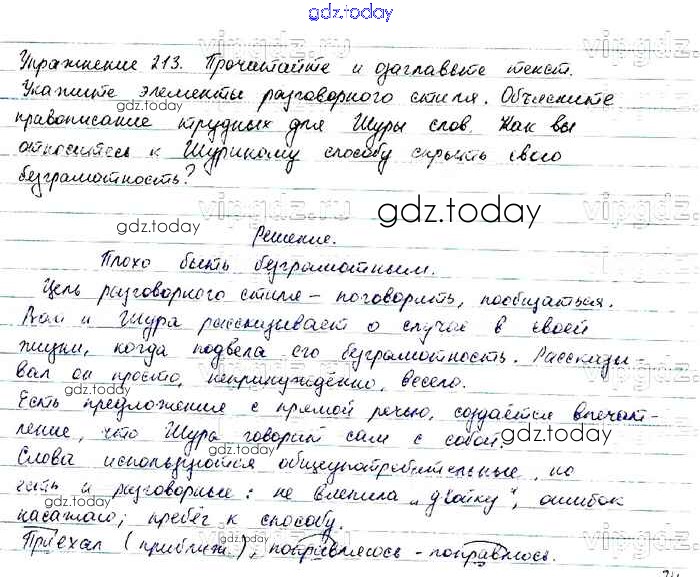 gdz.today
Упражнение 213. Прочитайте и озаглавьте текст.
Укажите элементы разговорного стиля. Объясните
правописание трудных для Шуры слов. Как вы
относитесь к Шуриному способу скрыть свою
безграмотность?
gdz.today
vipgdz.ru
gdz.today
Решение.
Плохо быть безграмотным.
Цель разговорного стиля - поговорить, пообщаться.
Вот и Шура рассказывает о случае в своей
жизни, когда подвела его безграмотность. Рассказы-
вал он просто, непринуждённо, весело.
gdz.today
Есть предложение с прямой речью, создаётся впечат-
ление, что Шура говорит сам с собой.
gdz.today
Слова используются общеупотребительные, но
есть и разговорные: не влепила „двойку", ошибок
насажаю; пребег к способу.
gdz.today
vipgdz.ru
Приехал (приближ.), понравилось - понравлюсь.